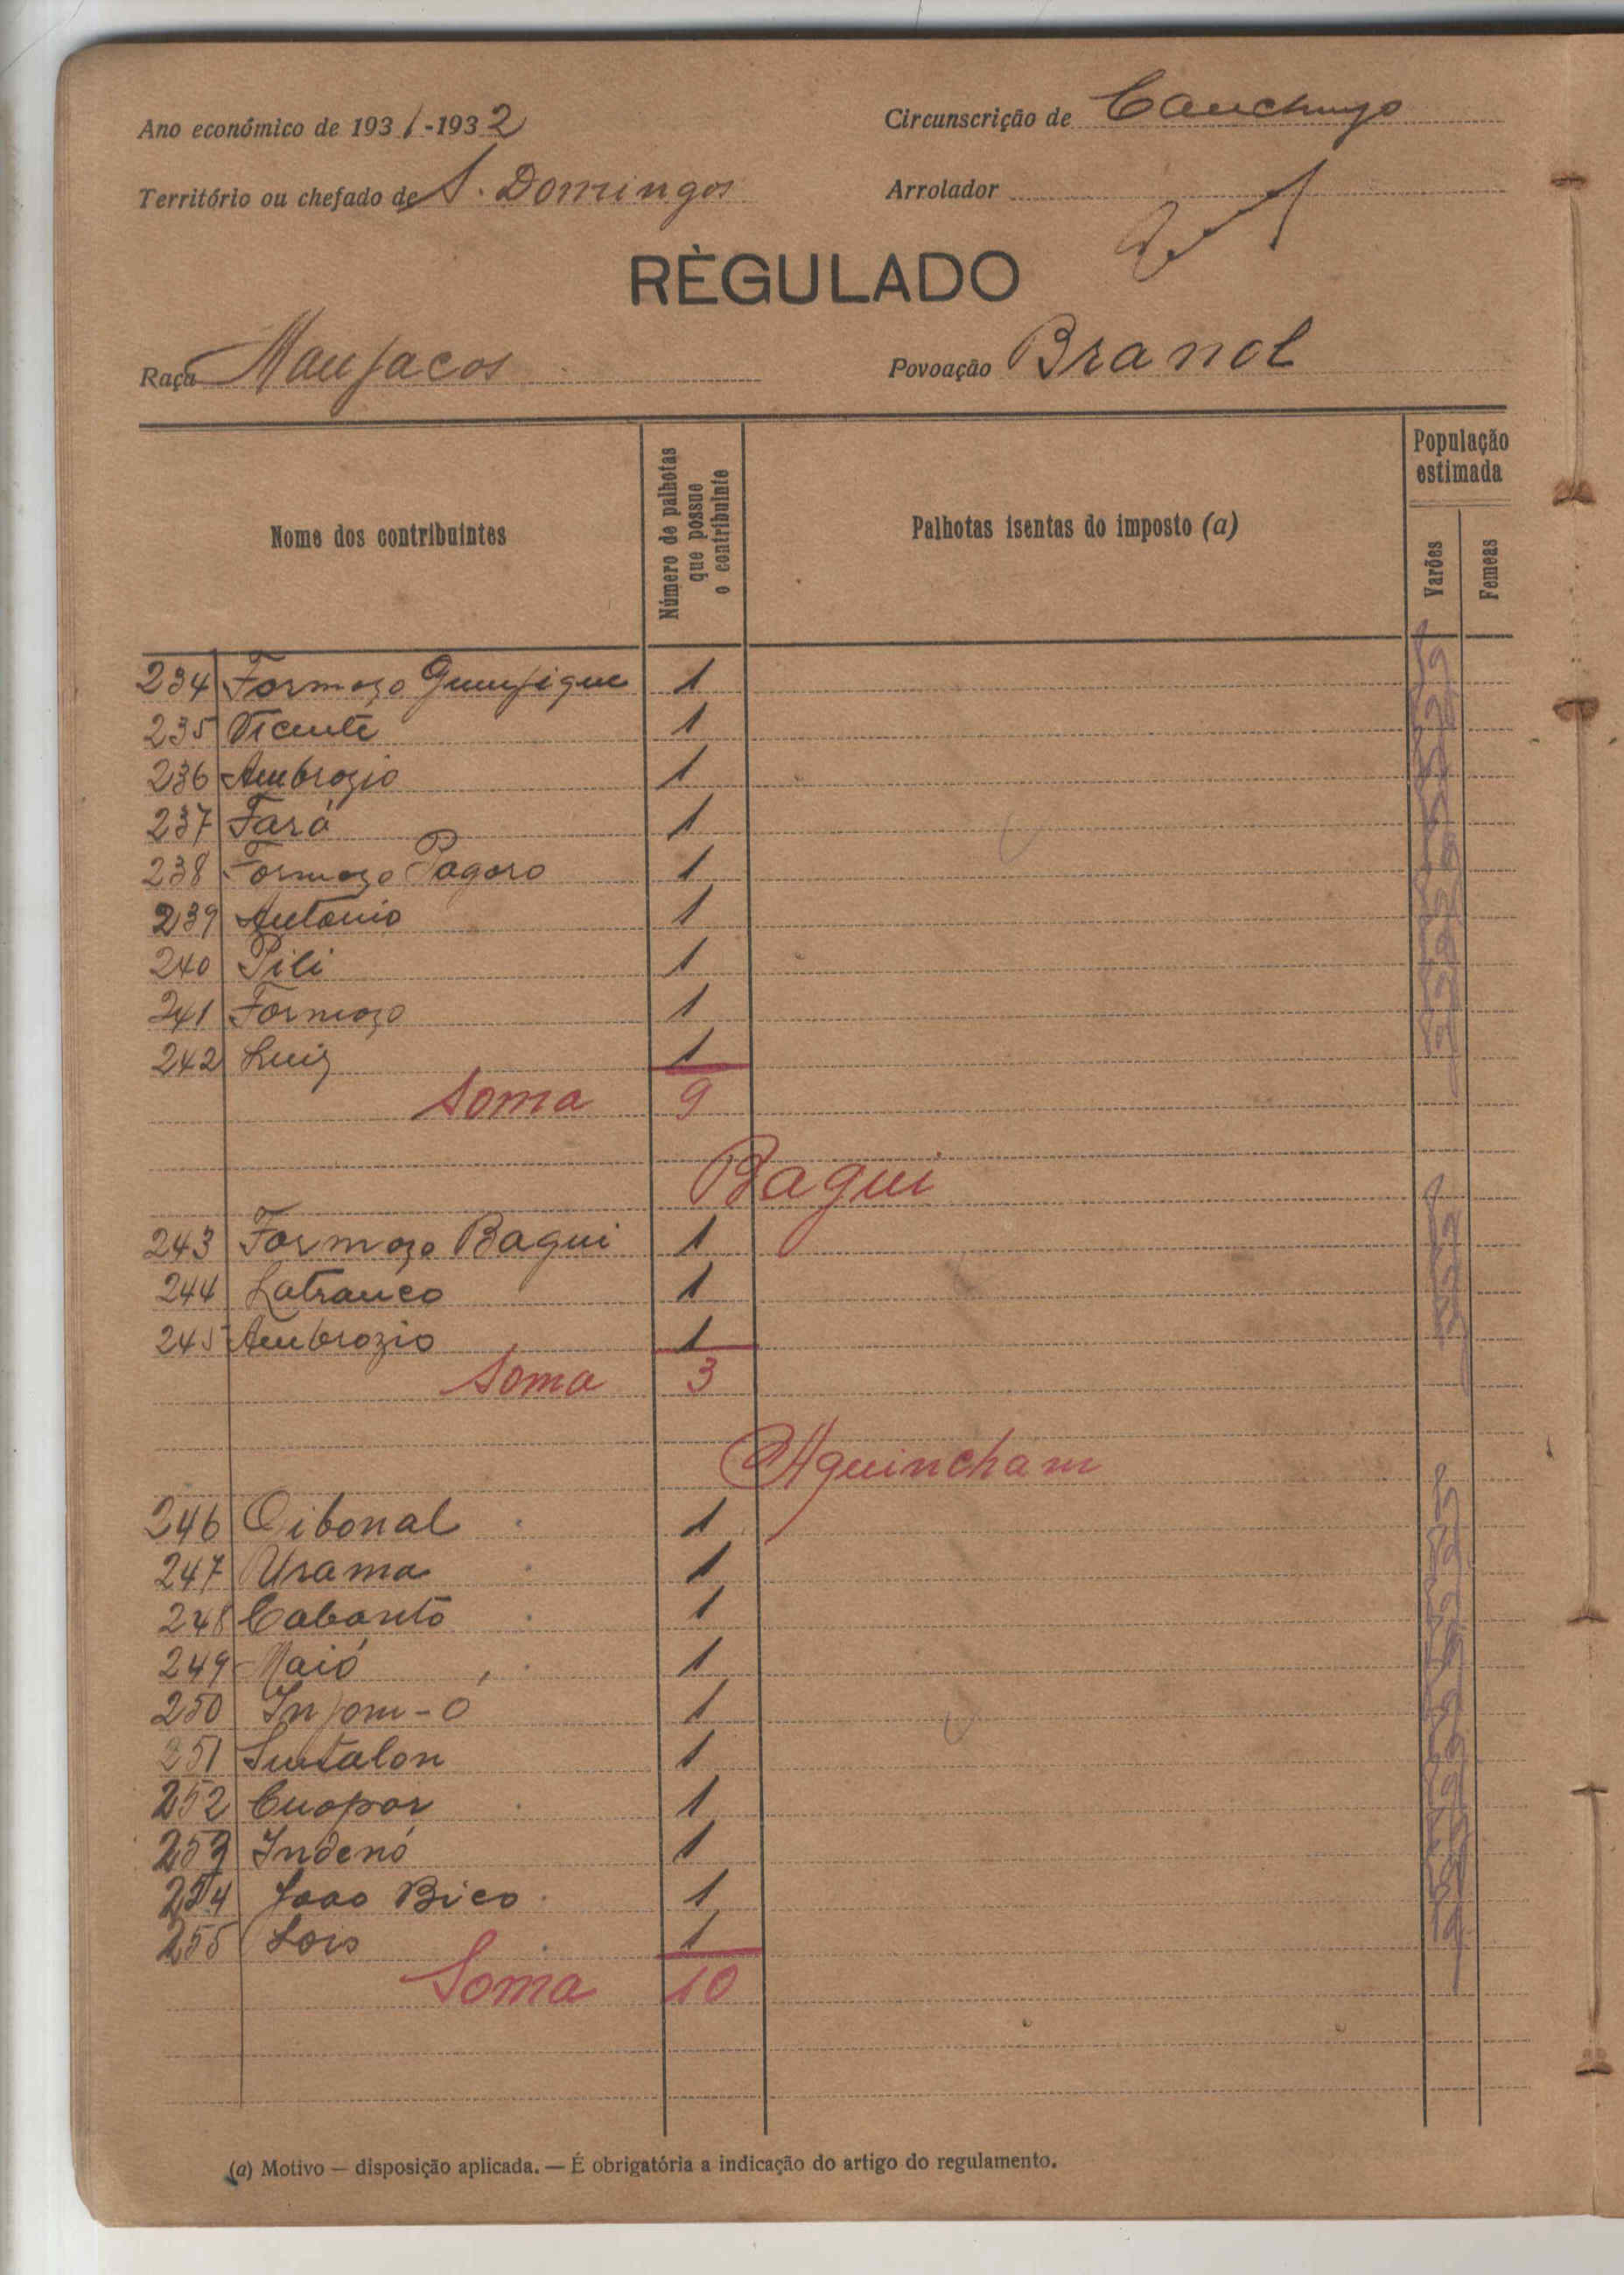 Ano económico de 1931-1932
Circunscrição de Canchungo
Território ou chefado de S. Domingos
Arrolador
RÈGULADO
Raça Manjacos
Povoação Branol
Nome dos contribuintes
Número de palhotas que possue o contribuinte
Palhotas isentas do imposto (a)
População estimada
Varões
Femeas
234 Formozo 1
235 Vicente 1
236 Ambrozio 1
237 Fará 1
238 Formozo Pagoro 1
239 Antonio 1
240 Pili 1
241 Formozo 1
242 Luiz 1
Soma 9
Bagui
243 Formozo Bagui 1
244 Latranco 1
245 Ambrozio 1
Soma 3
Aguincham
246 Oibonal 1
247 Urama 1
248 Cabantó 1
249 Maió 1
250 Injom-O 1
251 1
252 Cuopor 1
253 Indenó 1
254 Joao Bico 1
255 Lois 1
Soma 10
(a) Motivo — disposição aplicada. — É obrigatória a indicação do artigo do regulamento.